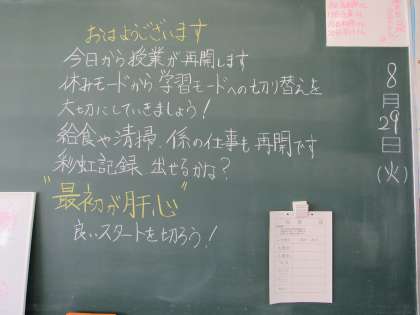 おはようございます
今日から授業が再開します
休みモードから学習モードへの切り替えを
大切にしていきましょう!
給食や清掃、係の仕事も再開です
彩虹記録 出せるかな?
"最初が肝心"
良いスタートを切ろう!
8月29日(火)